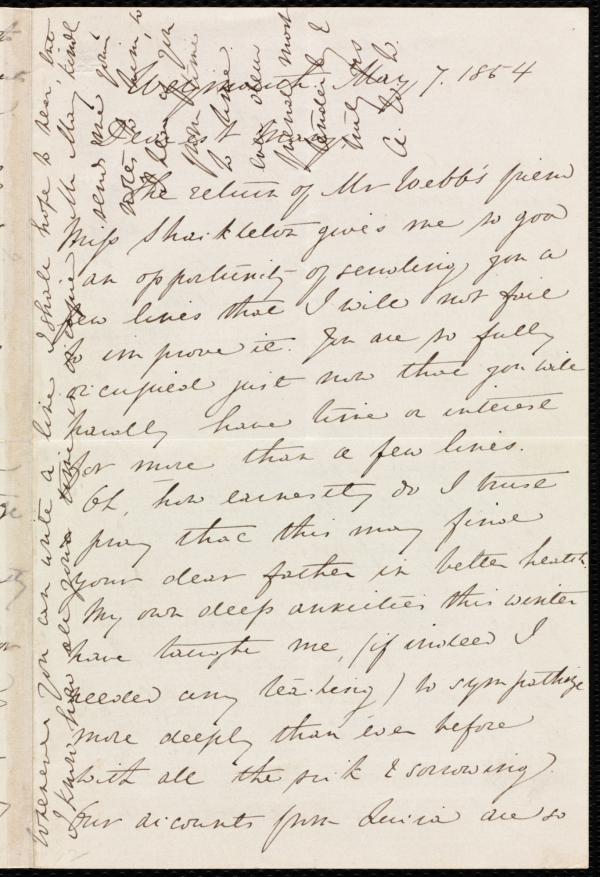 Weymouth, May 7. 1864
Dearest Mary,
The return of Mr Webb's friend
Miss Shackleton gives me so good
an opportunity of sending you a
few lines that I will not fail
to improve it. You are so fully
occupied just now that you will
hardly have time or interest
for more than a few lines.
Oh, how earnestly do I trust
pray that this may find
your dear father in better health.
My own deep anxieties this winter
have taught me, (if indeed I
needed any teaching) to sympathize
more deeply than ever before
with all the sick & sorrowing.
Our accounts from are so
Whenever you can write a line I shall hope to hear, but
I know how all your time is Mr May kind
send me your
notes to him, to
hear of you
from time
to time.
Ever dear
friend most
tenderly &
truly yrs
A. W. W.